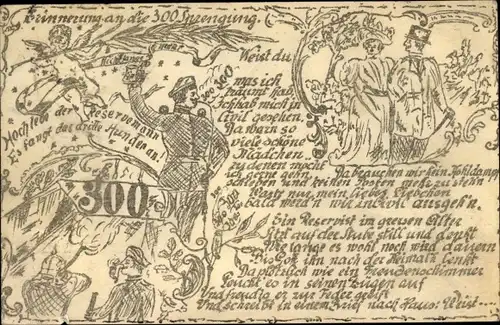 Erinnerung an die 300 Sprengung.
Hoch lebe der Reservemann
Es fängt das dritte Hundert an!
300
300 300
Weist du
was ich
träumt hab,
Ich hab mich in
Civil gesehen,
Da warn so
viele schöne
Mädchen,
zu denen möcht
ich gerne gehn,
Da brauchen wir kein Kohldampf
schieben und keinen Posten mehr zu stehn
Warte nur, mein liebes Herzchen
Bald werd'n wir in Civil ausgeh'n.
Ein Reservist im greisen Alter
Sitzt auf der Stube still und denkt
Wie lange es wohl noch wird dauern
Bis Gott ihn nach der Heimath lenkt
Da plötzlich wie ein Freudenschimmer
Leucht es in seinen Augen auf
Und freudig er zur Feder greift
Und schreibt in einem Brief nach Haus: Weist